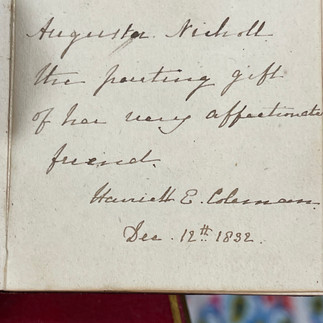 Augusta Nicholl
the parting gift
of her very affectionate
friend.
Harriett E. Coleman
Dec. 12th. 1832.